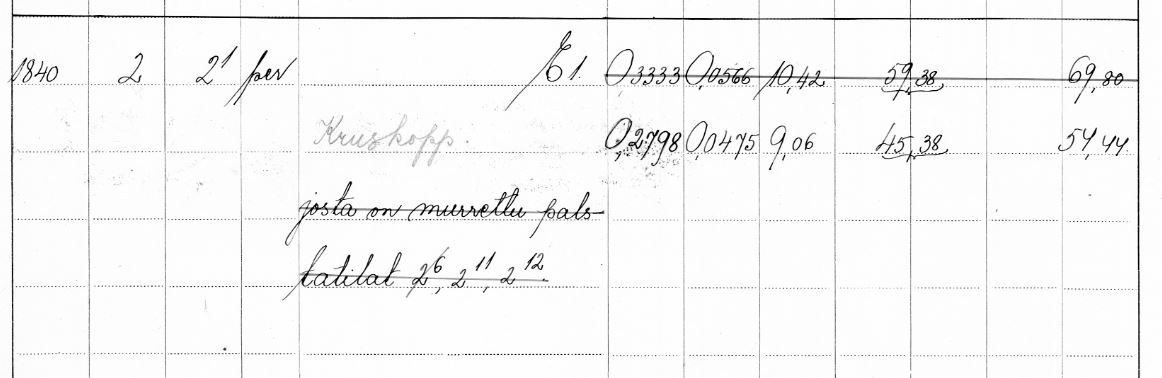 1840 2 2¹ per E 1. 0,3333 0,0566 10,42 59,38 69,80
Kruskopp. 0,2798 0,0475 9,06 45,38 54,44
josta on murrettu pals-
tatilat 2⁶, 2¹¹, 2¹².